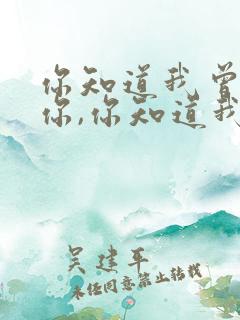 你知道我曾
你,你知道我
吴建平
未经同意禁止转载